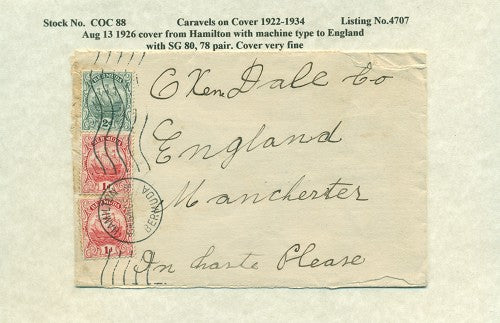 Stock No. COC 88 Caravels on Cover 1922-1934 Listing No.4707
Aug 13 1926 cover from Hamilton with machine type to England
with SG 80, 78 pair. Cover very fine
Oxendale Co
England
Mancherter
In haste Please
BERMUDA
2d
1d
1d
HAMILTON
BERMUDA